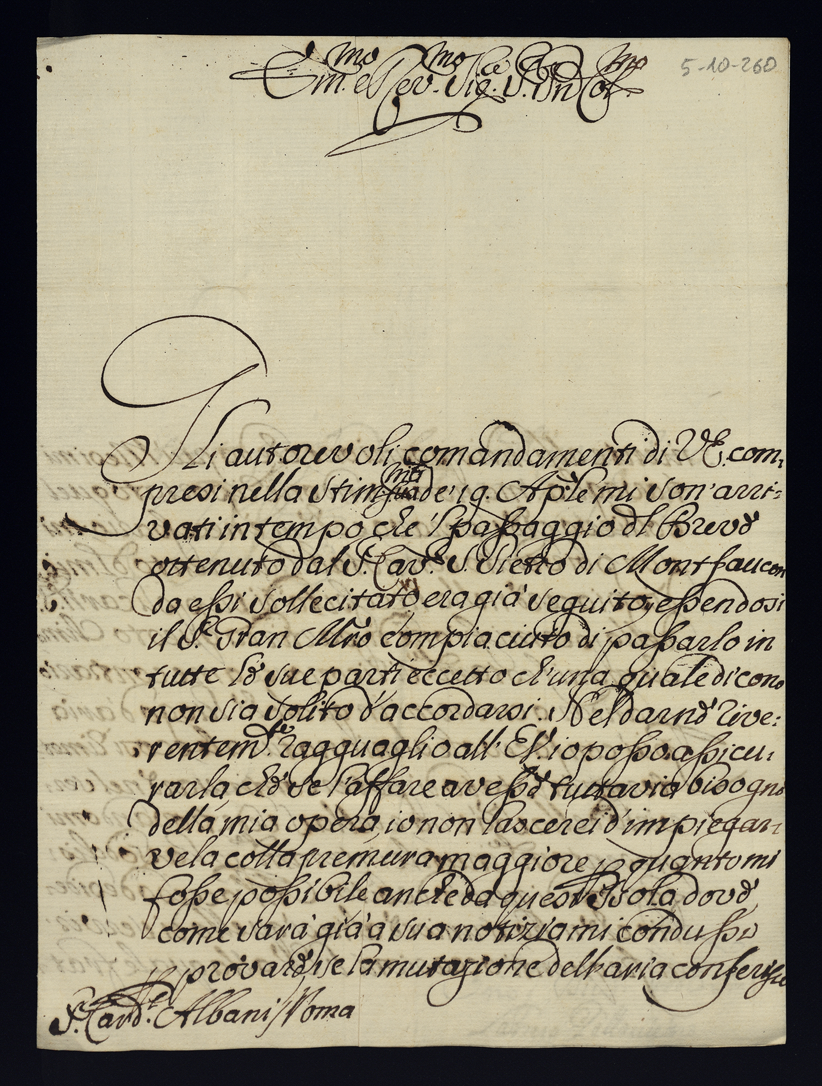 5-10-260
Em.mo e Rev.mo Sig.re S. Pn Col.mo
Gli autorevoli comandamenti di V.E. com-
presi nella stim.ma de' 19. Aple mi son' arri-
vati in tempo che 'l passaggio dl Breve
ottenuto dal S. Cav.re S. Pietro di Montfaucon
da essi sollecitato era già seguito, essendosi
il S.r Gran Mro compiaciuto di passarlo in
tutte le sue parti eccetto ch'una quale dicono
non sia solito d'accordarsi. Nel darne rive-
rentem.te ragguaglio all' E.V. io posso assicu-
rarla che se l'affare avesse tuttavia bisogno
della mia opera, io non lascerei d'impiegar-
vela colla premura maggiore p quanto mi
fosse possibile anche da quest'Isola dove
come sarà già a sua notizia mi condussi
p provare se la mutazione dell'aria conferisse
S.r Card.le Albani / Roma